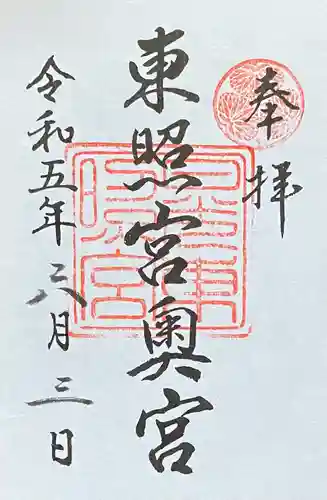 奉拝
東照宮奥宮
令和五年六月三日